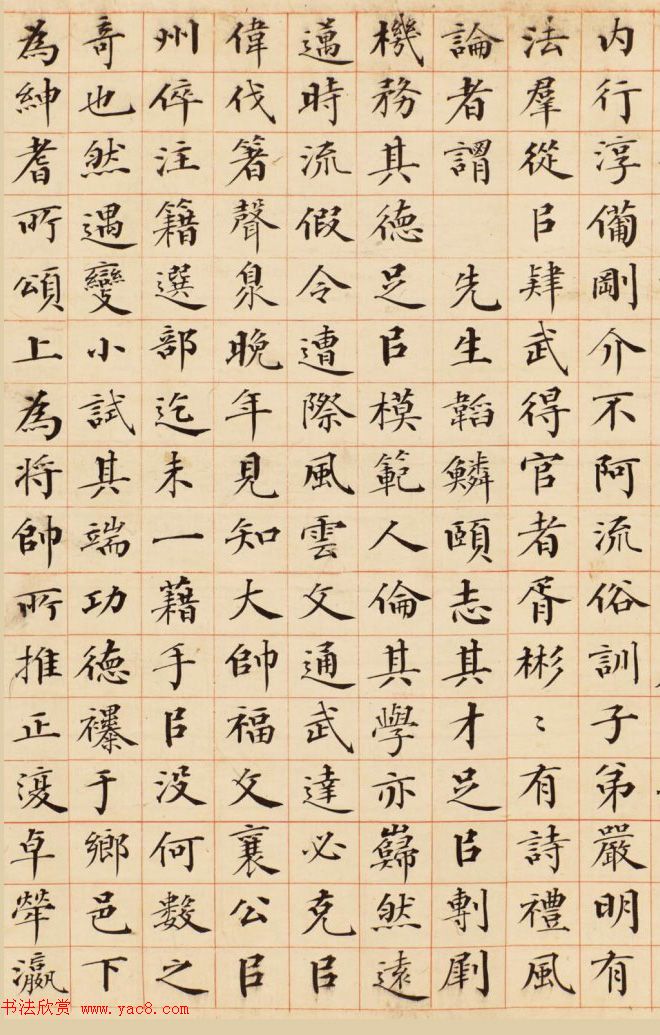 内行淳備剛介不阿流俗訓子弟嚴明有
法羣從㠯肆武得官者胥彬〻有詩禮風
論者謂 先生韜鱗頤志其才足㠯剸劇
機務其德足㠯模範人倫其學亦巋然遠
邁時流假令遭際風雲文通武達必克㠯
偉伐箸聲臮晚年見知大帥福文襄公㠯
州倅注籍選部迄未一藉手㠯没何數之
奇也然遇變小試其端功德襮于鄉邑下
為紳耆所頌上為將帥所推正復卓犖瀛
书法欣赏 www.yac8.com